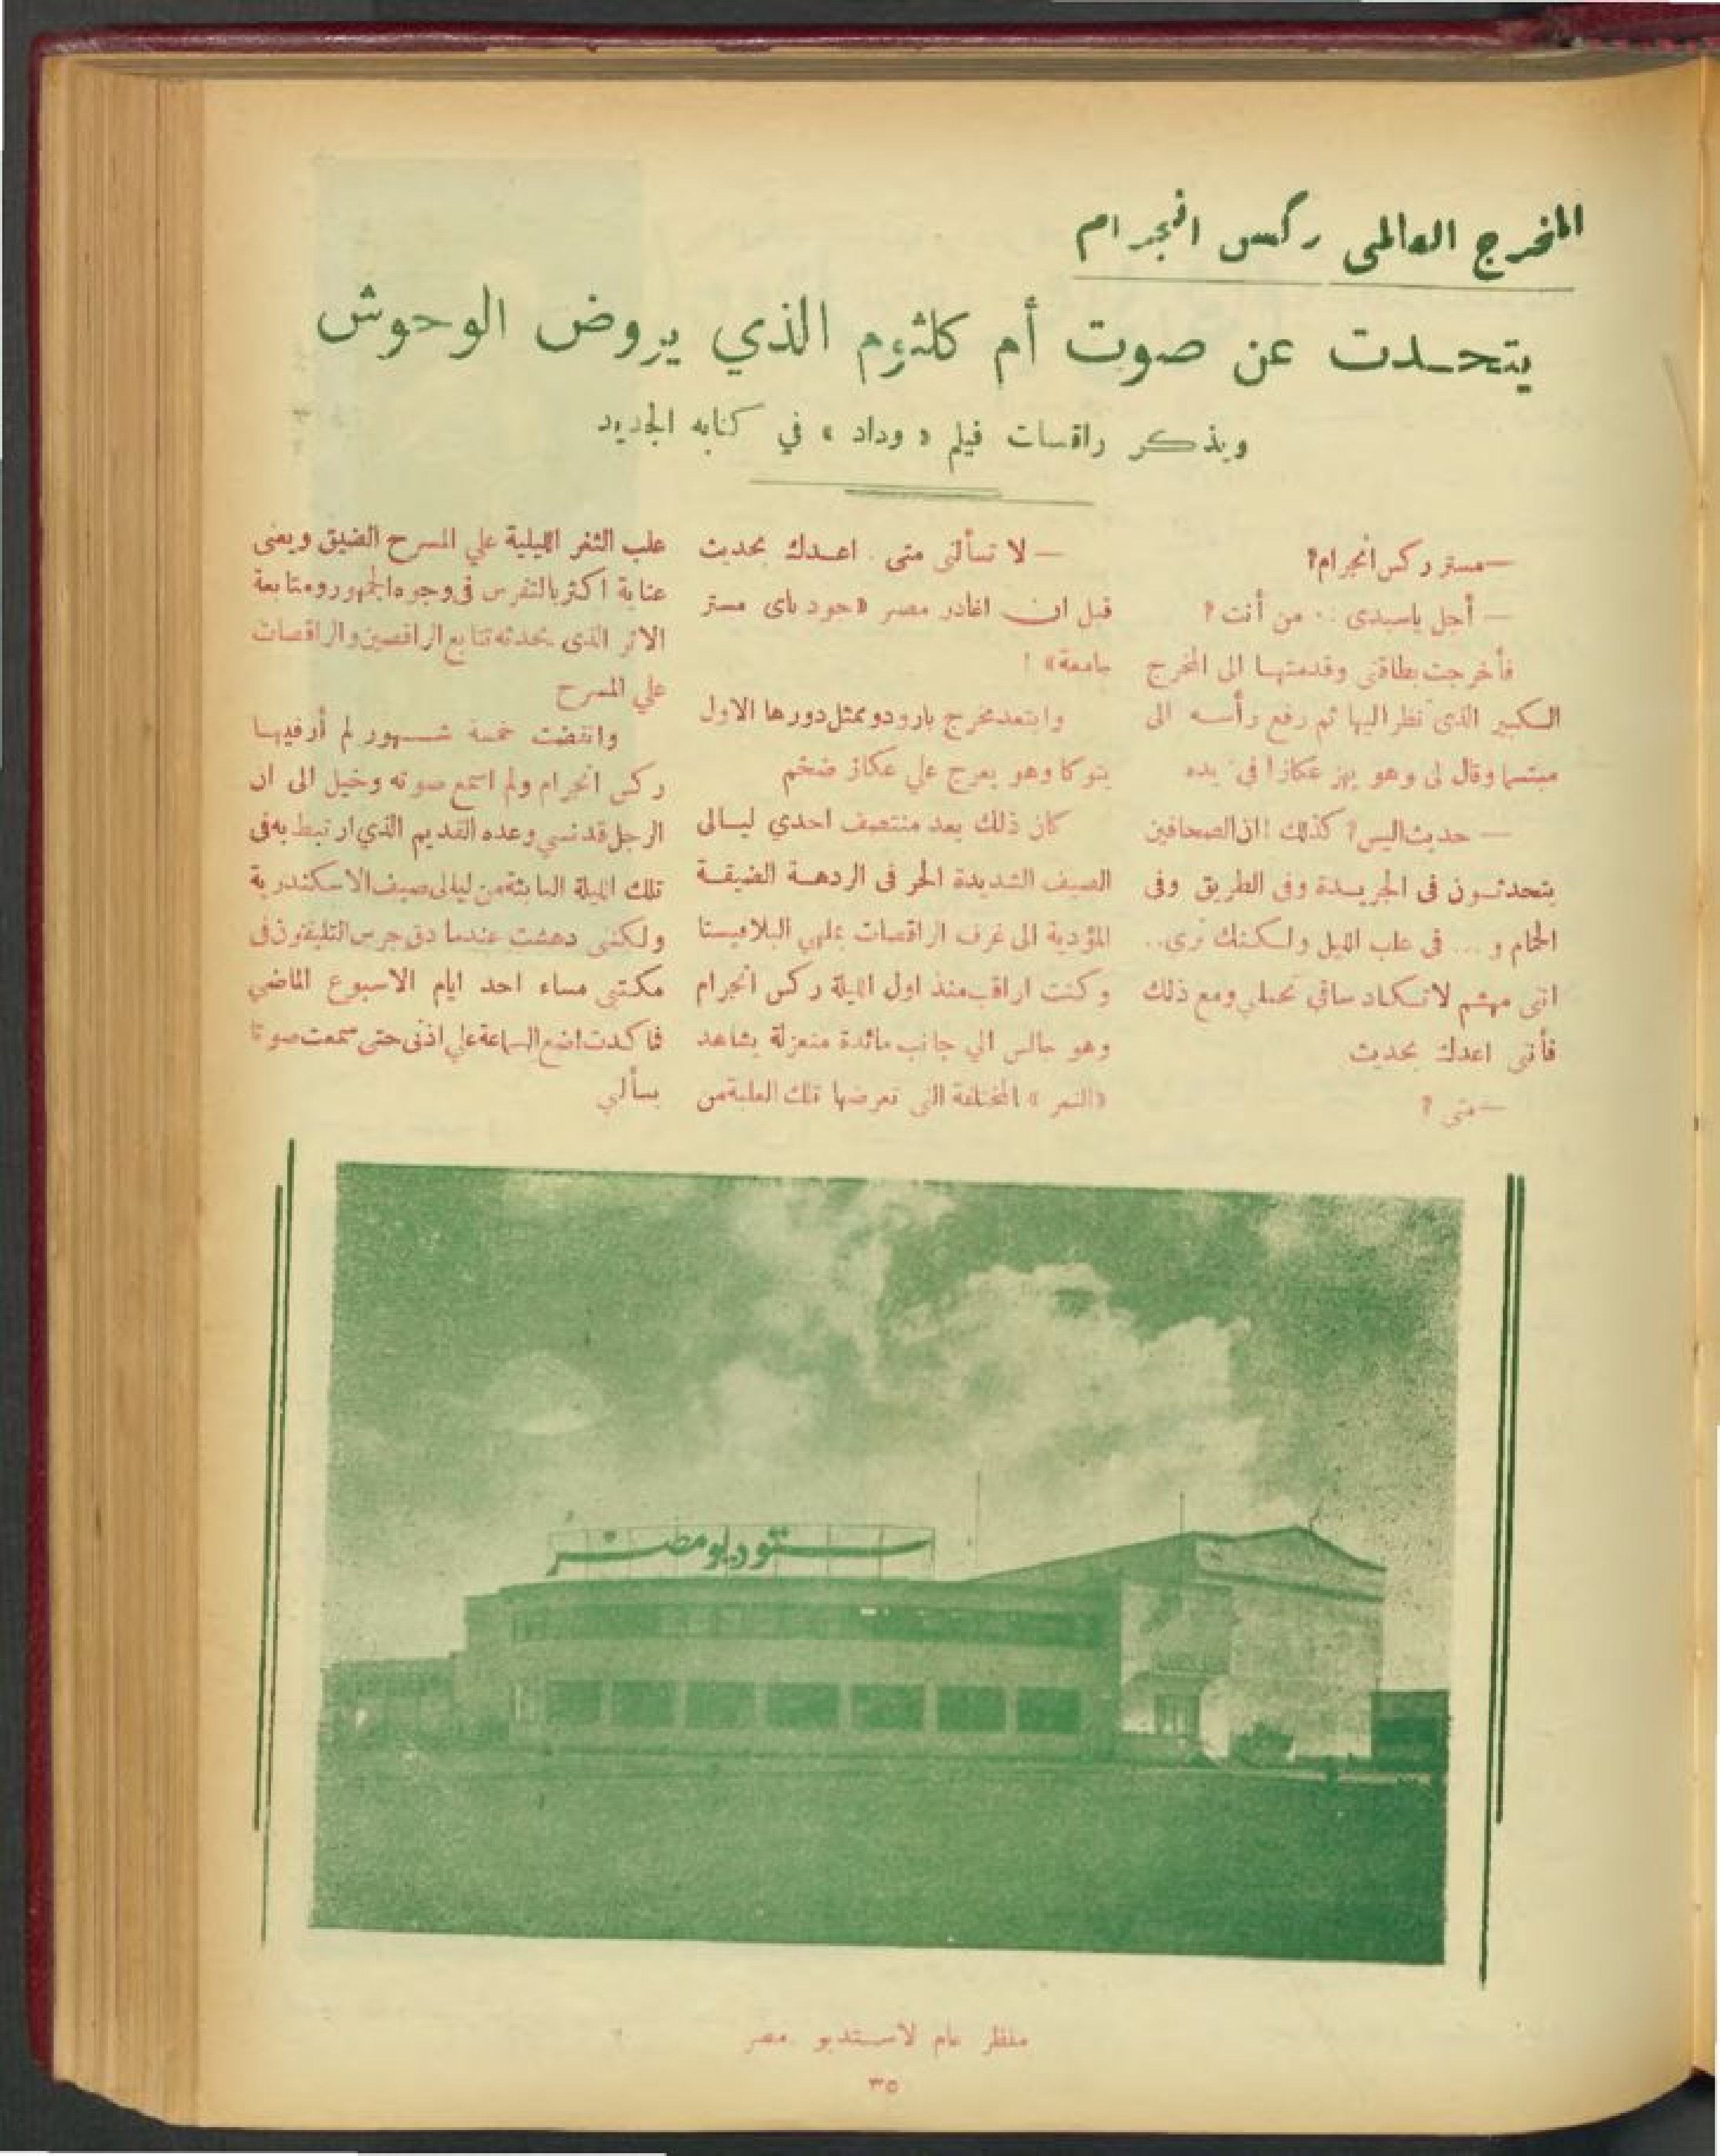 المخرج العالمى ركس انجرام
يتحدث عن صوت أم كلثوم الذي يروض الوحوش
ويذكر راقصات فيلم « وداد » في كتابه الجديد
— مستر ركس انجرام؟
— أجل ياسيدى .. من أنت ؟
فأخرجت بطاقتى وقدمتها الى المخرج
الكبير الذى نظر اليها ثم رفع رأسه الى
مبتسما وقال لى وهو يهز عكازا فى يده
— حديث اليس؟ كذلك ! ان الصحافيين
يتحدثون فى الجريدة وفى الطريق وفى
الحمام و ... فى علب الليل ولكنك ترى ..
انى مهشم لاتكاد ساقى تحملنى ومع ذلك
فأنى اعدك بحديث
— متى ؟
— لا تسألنى متى . اعدك بحديث
قبل ان اغادر مصر «جود باى مستر
جامعة» !
وابتعد مخرج بارود وممثل دورها الاول
يتوكا وهو يعرج علي عكاز ضخم
كان ذلك بعد منتصف احدي ليالى
الصيف الشديدة الحر فى الردهة الضيقة
المؤدية الى غرف الراقصات بملهي البلافيستا
وكنت اراقب منذ اول الليلة ركس انجرام
وهو جالس الي جانب مائدة منعزلة يشاهد
«النمر» المختلفة التى تعرضها تلك العلبة من
علب الثغر الليلية علي المسرح الضيق ويعنى
عناية اكثر بالتفرس فى وجوه الجمهور ومتابعة
الاثر الذى يحدثه تتابع الراقصين والراقصات
علي المسرح
وانقضت خمسة شهور لم أر فيها
ركس انجرام ولم اسمع صوته وخيل الى ان
الرجل قد نسي وعده القديم الذي ارتبط به فى
تلك الليلة من ليالى صيف الاسكندرية
ولكننى دهشت عندما دق جرس التليفون فى
مكتبي مساء احد ايام الاسبوع الماضي
فما كدت اضع السماعة علي اذنى حتى سمعت صوتا
يسألني
ستوديو مصر
منظر عام لاستديو مصر
٣٥